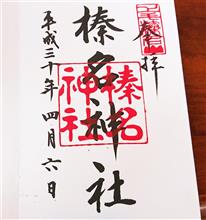 奉拝
榛名神社
榛名神社
平成三十年四月六日